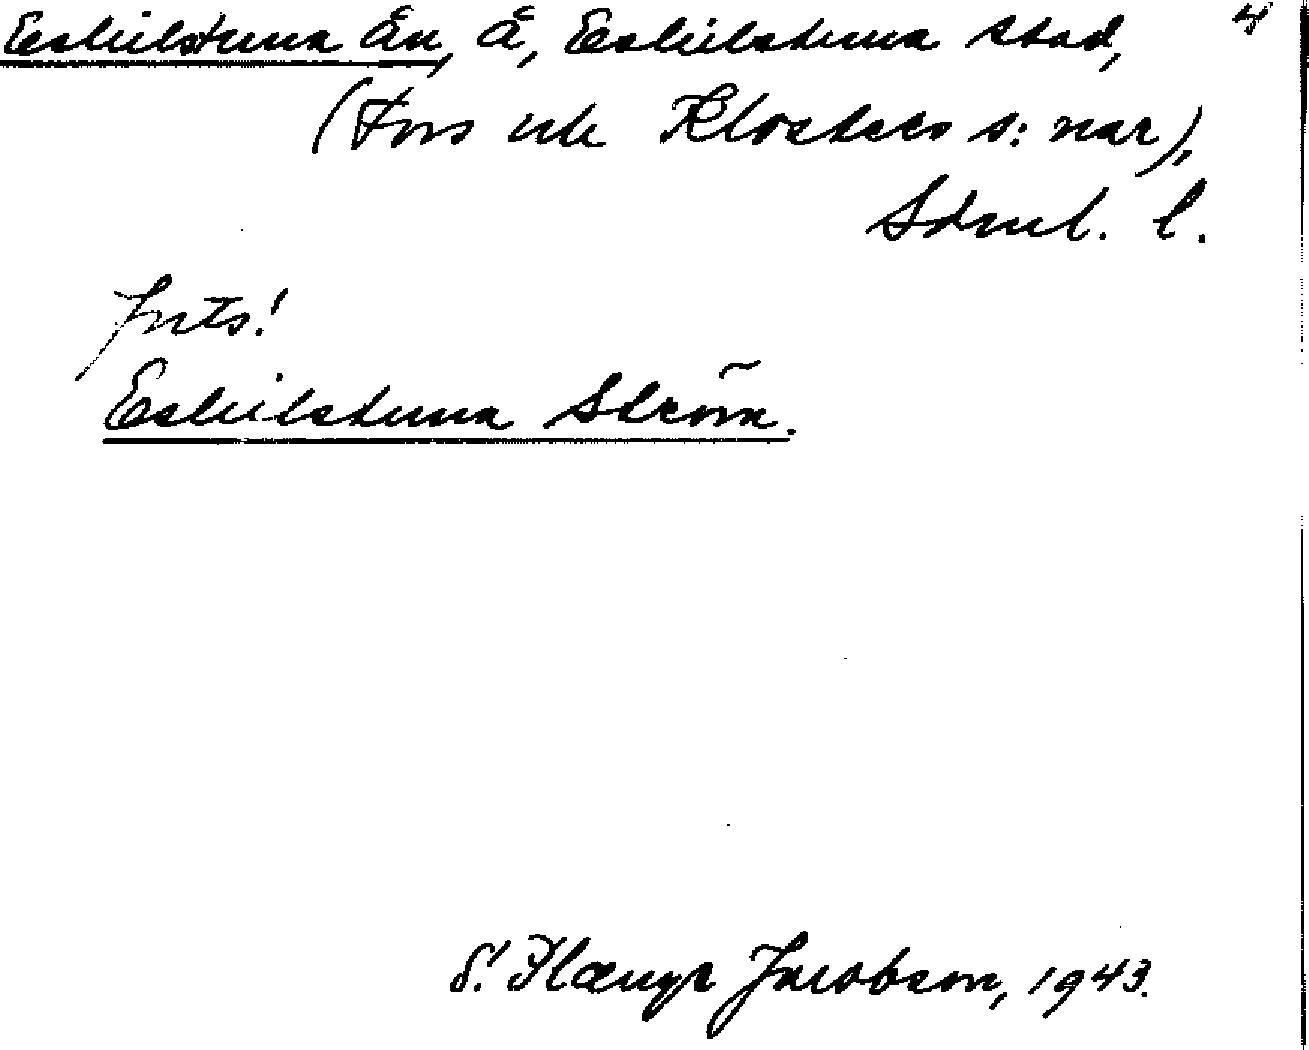 Eskilstuna Ån, Å, Eskilstuna stad, 4
(Fors och Klosters s:nar),
Södml. l.
Jnts!
Eskilstuna Ström.
Jacobson, 1943.